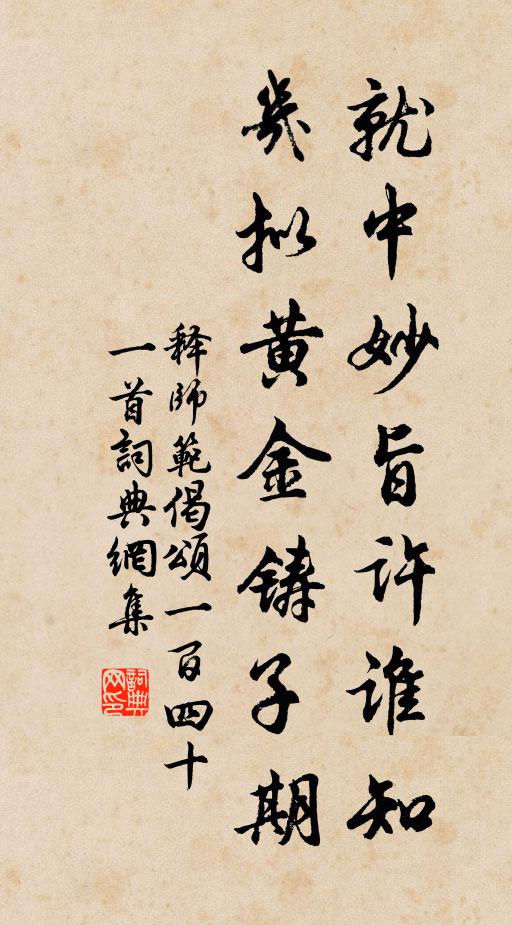 就中妙旨许谁知
几拟黄金铸子期
释师範偈頌一百四十
一首詞典網集
詞典
网印